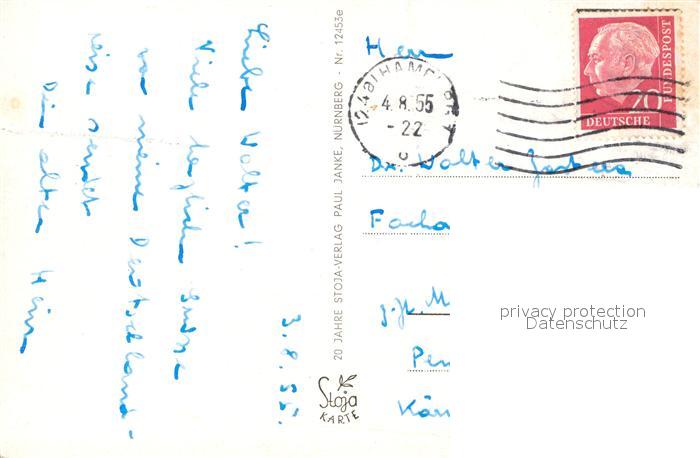 Liebe Walter!
Viele herzliche Grüsse
von meiner Deutschland-
reise sendet
Dein alter Hein
3.8.55.
20 JAHRE STOJA-VERLAG PAUL JANKE, NÜRNBERG - Nr. 12453e
Stoja
KARTE
Herrn
(24a) HAMBURG
4.8.55
-22
DEUTSCHE
BUNDESPOST
20
Dr. Walter
Facha
z.Zt. M
Pen
Kär
privacy protection
Datenschutz